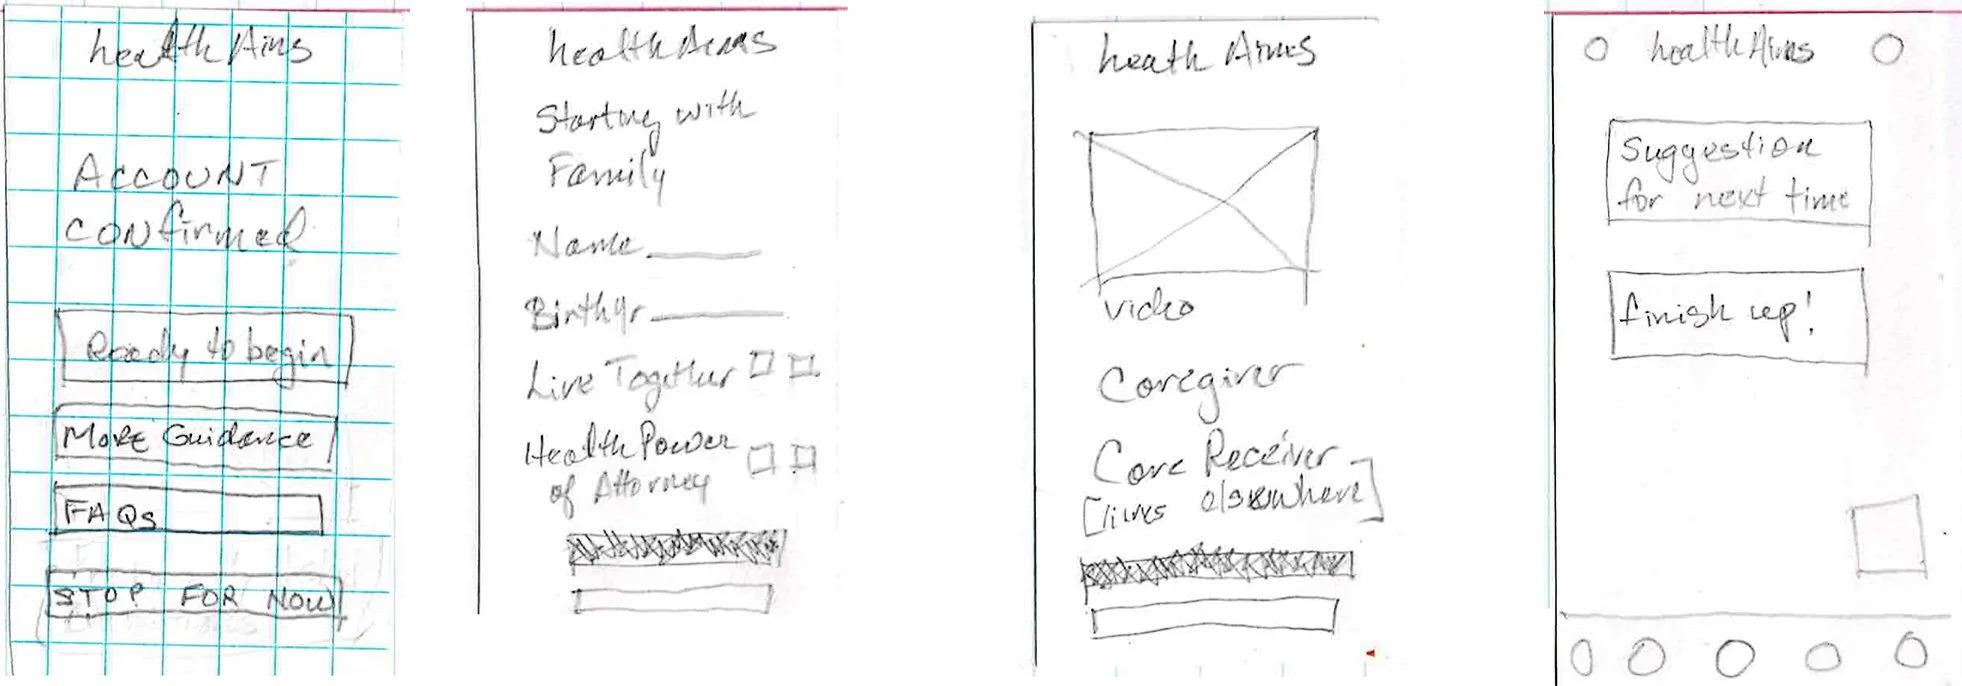 health Aims
ACCOUNT
confirmed
Ready to begin
MORE Guidance
FAQs
STOP FOR NOW
health Aims
Starting with
Family
Name
Birthyr
Live Together
Health Power
of Attorney
heath Aims
video
Caregiver
Care Receiver
[lives elsewhere]
health Aims
Suggestion
for next time
finish up!